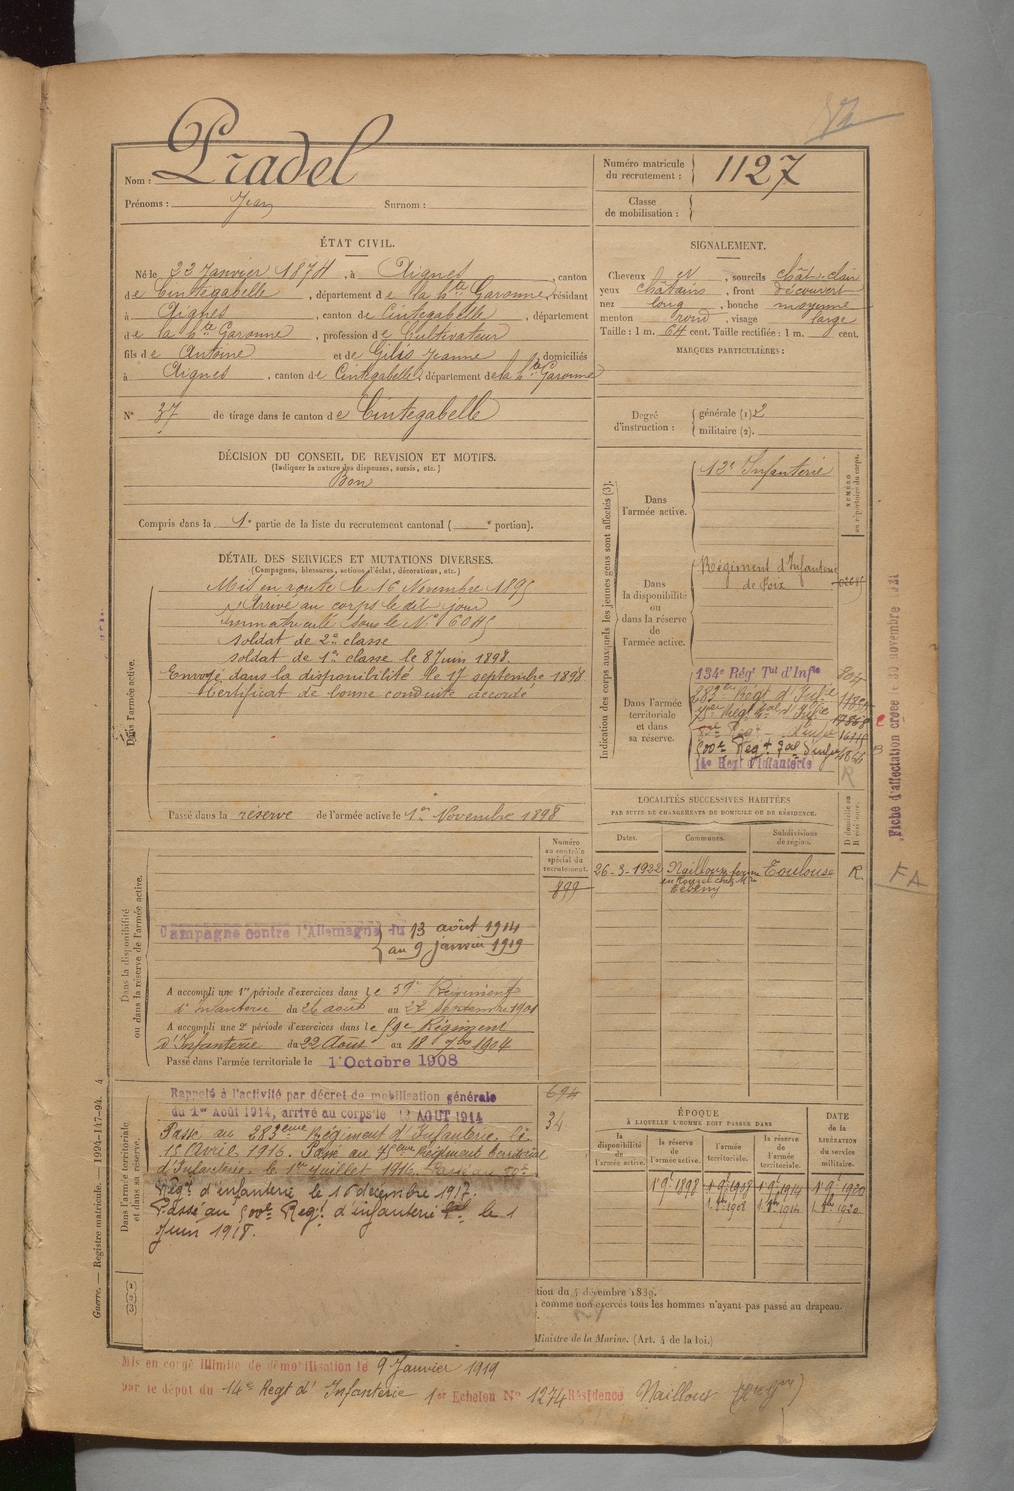 Nom : Pradel
Prénoms : Jean Surnom :
Numéro matricule du recrutement : 1127
Classe de mobilisation :
ÉTAT CIVIL.
Né le 22 Janvier 1874, à Aignes, canton
de Cintegabelle, département de la Hte Garonne, résidant
à Aignes, canton de Cintegabelle, département
de la Hte Garonne, profession de Cultivateur
fils de Antoine et de Gilis Jeanne, domiciliés
à Aignes, canton de Cintegabelle, département de la Hte Garonne
N° 37 de tirage dans le canton de Cintegabelle
SIGNALEMENT.
Cheveux N, sourcils chât. clair
yeux châtains, front découvert
nez long, bouche moyenne
menton rond, visage large
Taille : 1 m. 64 cent. Taille rectifiée : 1 m. cent.
MARQUES PARTICULIÈRES :
Degré d'instruction : générale (1) 2
militaire (2).
DÉCISION DU CONSEIL DE REVISION ET MOTIFS.
(Indiquer la nature des dispenses, sursis, etc.)
Bon
Compris dans la 1e partie de la liste du recrutement cantonal ( e portion).
DÉTAIL DES SERVICES ET MUTATIONS DIVERSES.
(Campagnes, blessures, actions d'éclat, décorations, etc.)
Dans l'armée active.
Mis en route le 16 Novembre 1895
Arrivé au corps le dit jour
immatriculé sous le N° 6045
soldat de 2e classe
soldat de 1re classe le 8 Juin 1898.
Envoyé dans la disponibilité le 17 septembre 1898
Certificat de bonne conduite accordé
Passé dans la réserve de l'armée active le 1er Novembre 1898
Indication des corps auxquels les jeunes gens sont affectés (3).
NUMÉRO au répertoire du corps.
Dans l'armée active.
12e Infanterie
Dans la disponibilité ou dans la réserve de l'armée active.
Régiment d'Infanterie
de Foix
Dans l'armée territoriale et dans sa réserve.
134e Rég' Tal d'Infie
283eme Régt d'Infie
75eme Régt tal d'Infie
500e Regt tal d'infie
14e Regt d'Infanterie
R
Fiche d'affectation créée le 30 novembre
FA
LOCALITÉS SUCCESSIVES HABITÉES
PAR SUITE DE CHANGEMENTS DE DOMICILE OU DE RÉSIDENCE.
Dates. Communes. Subdivisions de région. D domicile ou R résidence.
26-3-1922 Nailloux Toulouse R.
Dans la disponibilité ou dans la réserve de l'armée active.
Numéro au contrôle spécial du recrutement.
899
Campagne contre l'Allemagne du 13 août 1914
au 9 janvier 1919
A accompli une 1re période d'exercices dans le 59e Régiment
d'Infanterie du 26 août au 22 septembre 1901
A accompli une 2e période d'exercices dans le 59e Régiment
d'Infanterie du 22 Aout au 18 7bre 1904
Passé dans l'armée territoriale le 1er Octobre 1908
Dans l'armée territoriale et dans sa réserve.
694
34
Rappelé à l'activité par décret de mobilisation générale
du 1er Août 1914, arrivé au corps le 13 AOUT 1914
Passé au 283eme Régiment d'Infanterie le
15 Avril 1916. Passé au 75eme Régiment territorial
d'Infanterie le 1er Juillet 1916. Passé au
Régt d'infanterie le 16 décembre 1917.
Passé au 500e Régt d'infanterie tal le 1
Juin 1918.
ÉPOQUE
À LAQUELLE L'HOMME DOIT PASSER DANS
la disponibilité de l'armée active. la réserve de l'armée active. l'armée territoriale. la réserve de l'armée territoriale.
DATE de la LIBÉRATION du service militaire.
1 9bre 1898 1 9bre 1908 1 9bre 1914 1 9bre 1920
1. 8bre 1908 1. 8bre 1914 1. 8bre 1920
tion du 4 décembre 1889.
comme non exercés tous les hommes n'ayant pas passé au drapeau.
Ministre de la Marine. (Art. 4 de la loi.)
Guerre. — Registre matricule. — 1924-147-94. 4
Mis en congé illimité de démobilisation le 9 Janvier 1919
par le dépot du 14e Regt d'Infanterie 1er Echelon N° 1274 Résidence Nailloux (Hte Gne)